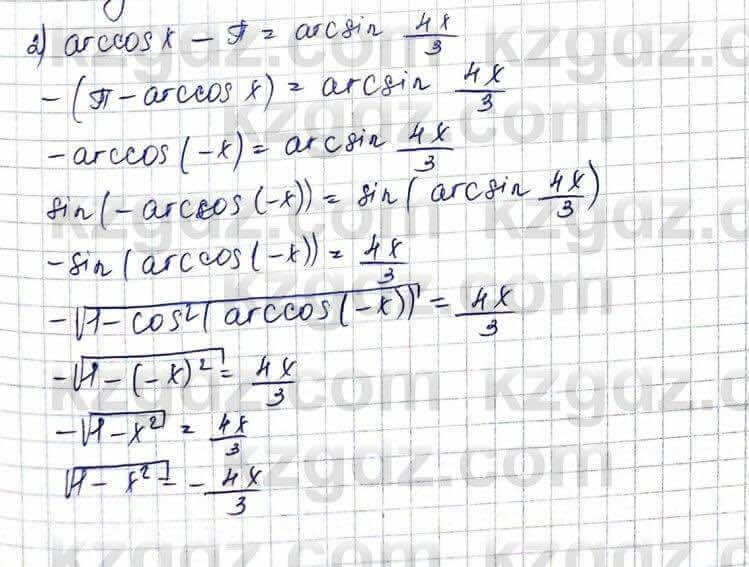 2) arccos x − π = arcsin 4x/3
−(π − arccos x) = arcsin 4x/3
−arccos(−x) = arcsin 4x/3
sin(−arccos(−x)) = sin(arcsin 4x/3)
−sin(arccos(−x)) = 4x/3
−√(1−cos²(arccos(−x))) = 4x/3
−√(1−(−x)²) = 4x/3
−√(1−x²) = 4x/3
√(1−x²) = −4x/3
kzgdz.com